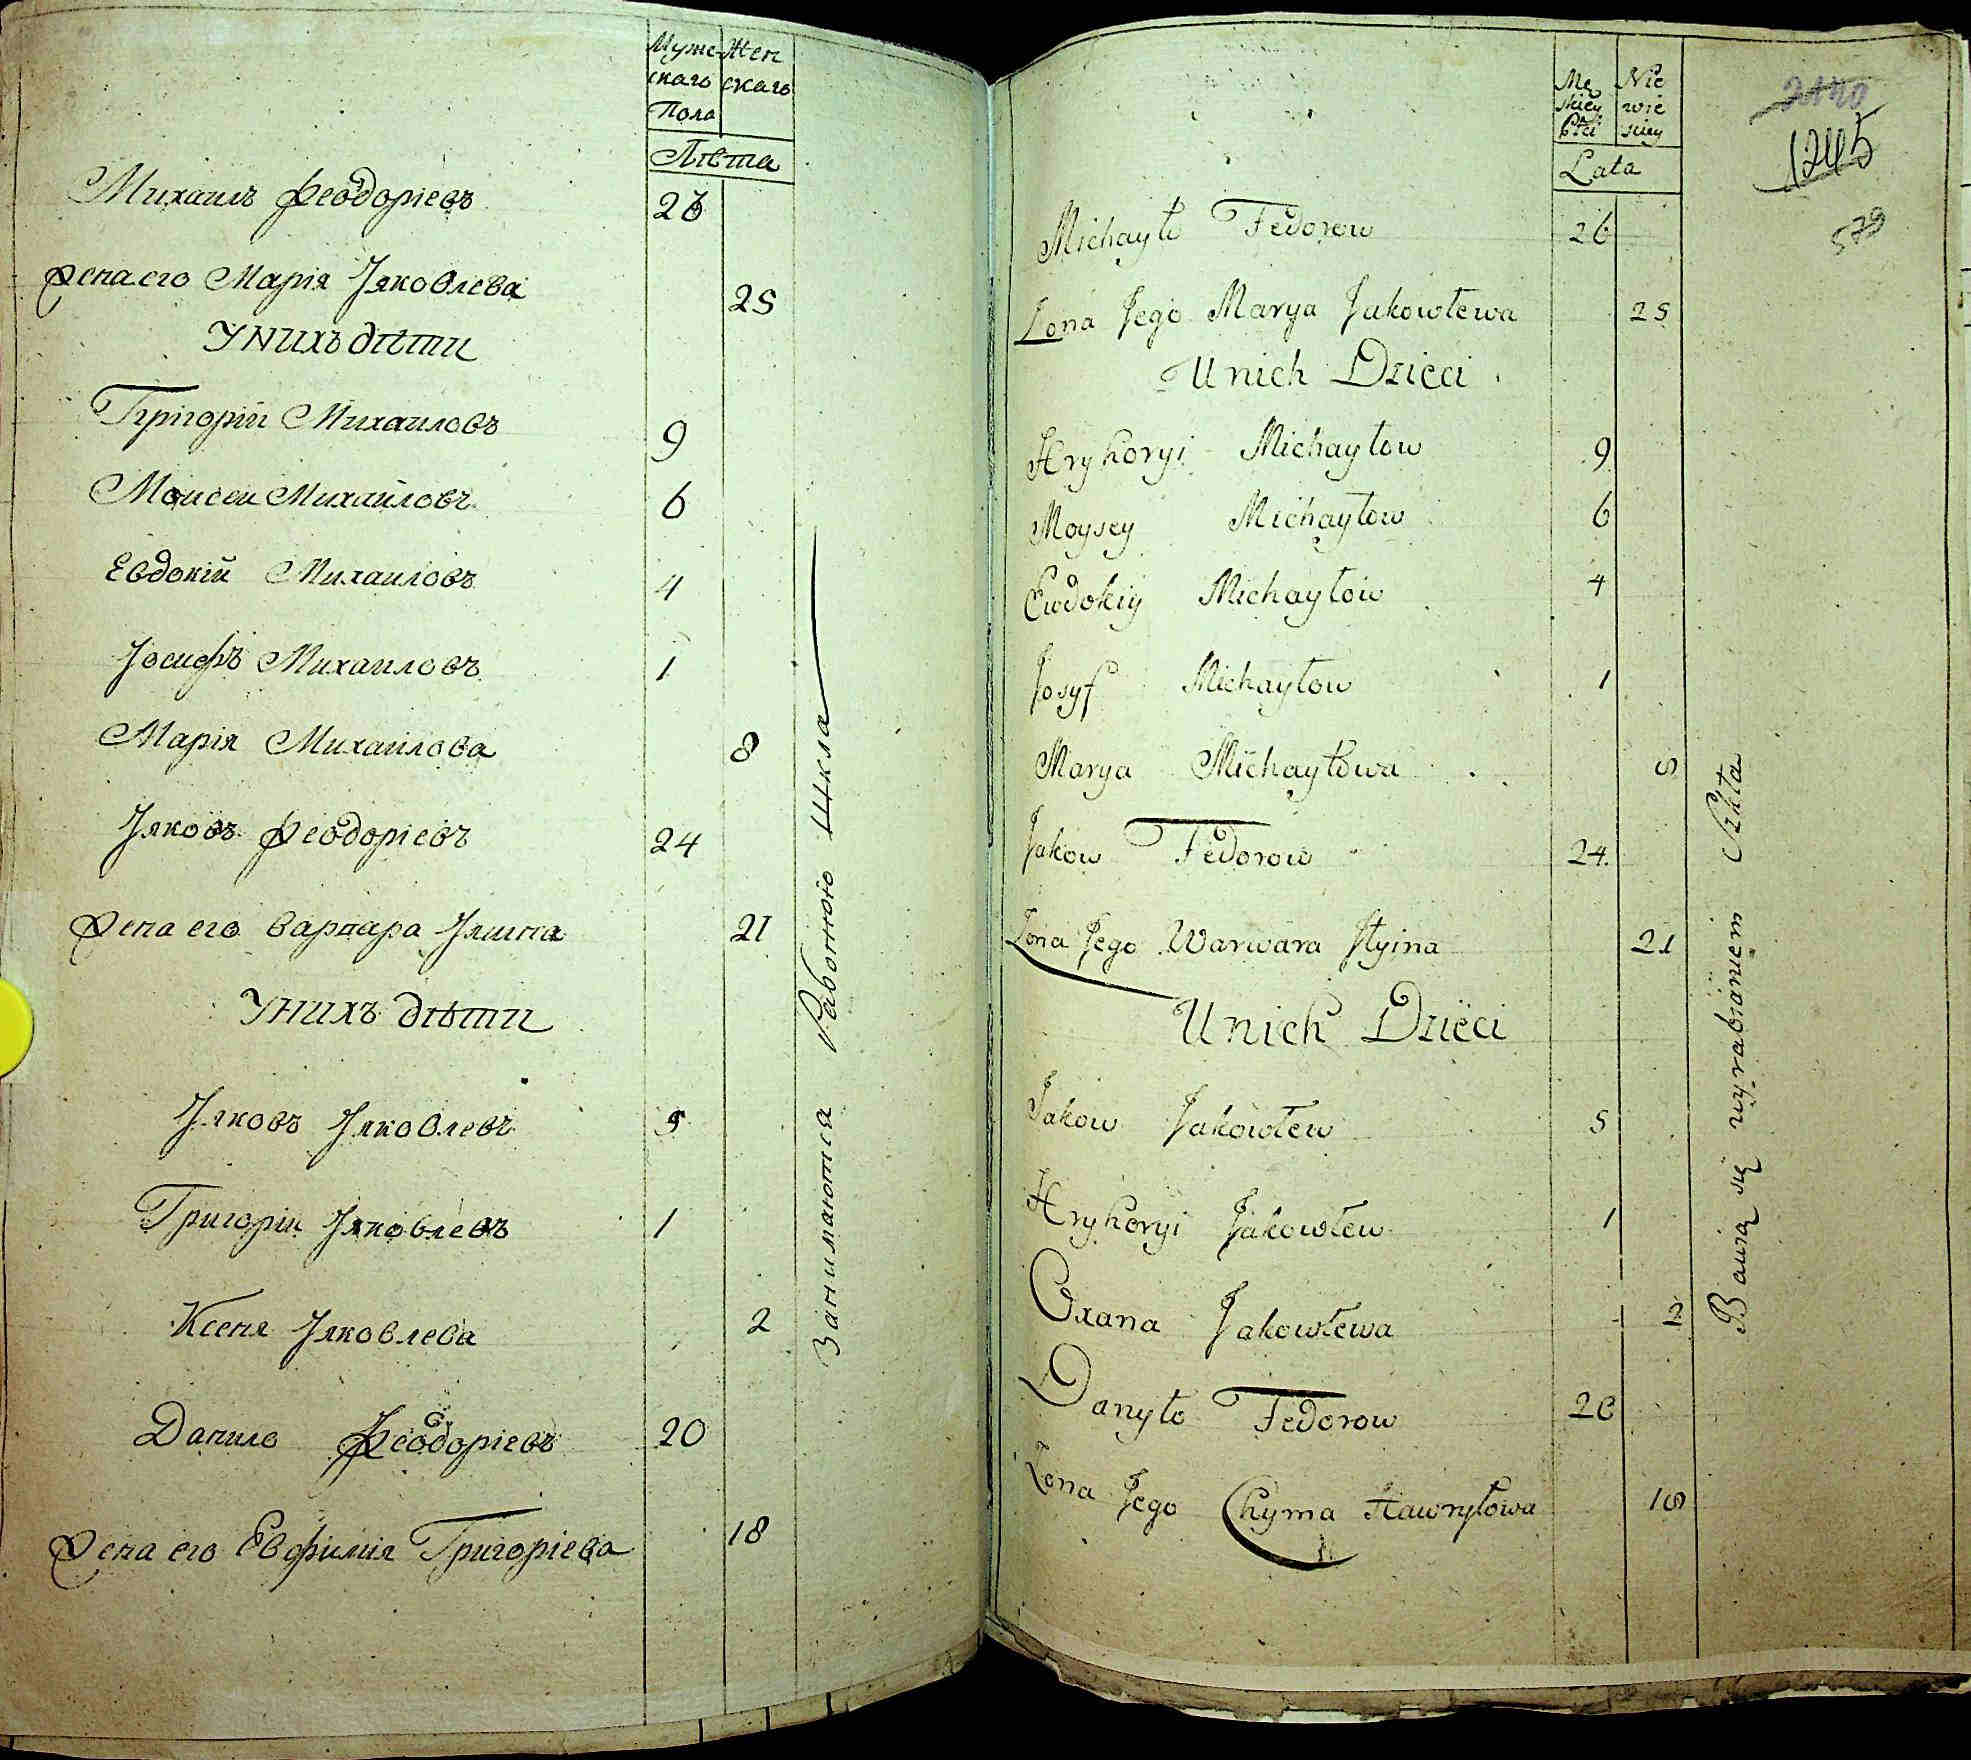 Муже-
скаго
Пола
Жен
скаго
Лѣта
Михаилъ Феодоріевъ 26
Жена его Марія Іяковлева 25
У нихъ дѣти
Григорій Михаиловъ 9
Моисеи Михайловъ 6
Евдокій Михаиловъ 4
Іосифъ Михаиловъ 1
Марія Михаилова 8
Іяковъ Феодоріевъ 24
Жена его Варвара Ілиина 21
У нихъ дѣти
Іяковъ Іяковлевъ 5
Григоріи Іяковлевъ 1
Ксеня Іяковлева 2
Данило Феодоріевъ 20
Жена его Евфимія Григоріева 18
Занимаются Работою Шкла
Mę
skiey
Płci
Nie
wie
sciey
Lata
2140
1245
579
Michayło Fedorow 26
Zona Jego Marya Jakowlewa 25
U nich Dzieci
Hryhoryi Michayłow 9
Moysey Michayłow 6
Ewdokiy Michayłow 4
Josyf Michayłow 1
Marya Michayłowa 8
Jakow Fedorow 24
Zona Jego Warwara Ilyina 21
U nich Dzieci
Jakow Jakowlew 5
Hryhoryi Jakowlew 1
Oxana Jakowlewa 2
Danyło Fedorow 20
Zona Jego Chyma Hawryłowa 18
Bawią się wyrabianiem Szkła